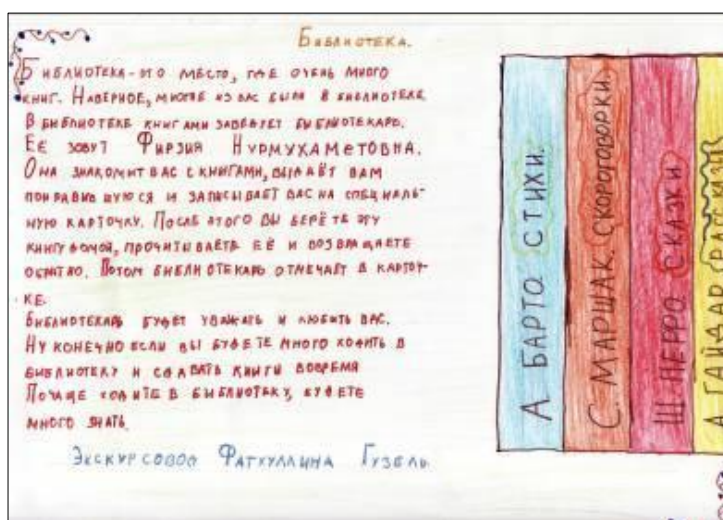 Библиотека.
Библиотека - это место, где очень много
книг. Наверное, многие из вас были в библиотеке.
В библиотеке книгами заведует библиотекарь.
Её зовут Фирзия Нурмухаметовна.
Она знакомит вас с книгами, выдаёт вам
понравившуюся и записывает вас на специаль-
ную карточку. После этого вы берёте эту
книгу домой, прочитываете её и возвращаете
обратно. Потом библиотекарь отмечает в карточ-
ке.
Библиотекарь будет уважать и любить вас.
Ну конечно если вы будете много ходить в
библиотеку и сдавать книги вовремя
Почаще ходите в библиотеку, будете
много знать.
Экскурсовод Фатхуллина Гузель
А БАРТО СТИХИ.
С. МАРШАК. СКОРОГОВОРКИ.
Ш. ПЕРРО СКАЗКИ
А. ГАЙДАР